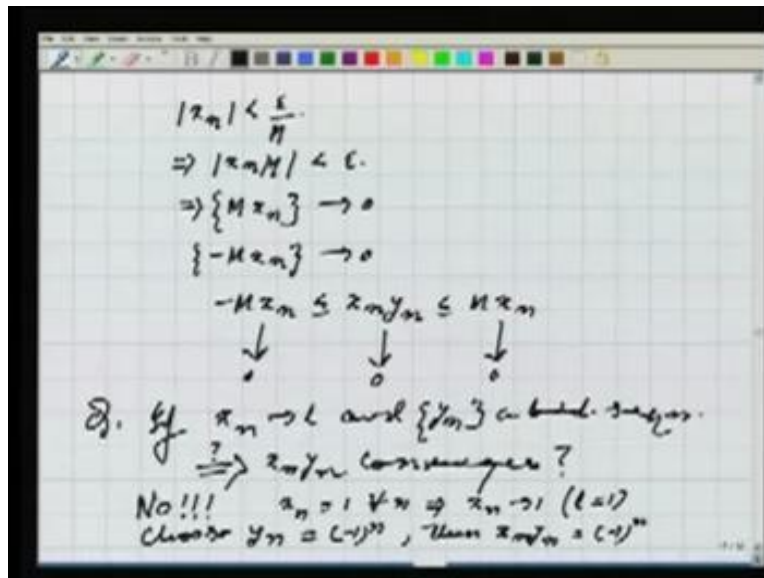 |x_n| < ε/M.
⇒ |x_n M| < ε.
⇒ {M x_n} → 0
{-M x_n} → 0
-M x_n ≤ x_n y_n ≤ M x_n
↓ ↓ ↓
0 0 0
Q. If x_n → l and {y_n} a bdd. seqn.
?⇒ x_n y_n converges?
No!!! x_n = 1 ∀ n ⇒ x_n → 1 (l = 1)
Choose y_n = (-1)^n, then x_n y_n = (-1)^n